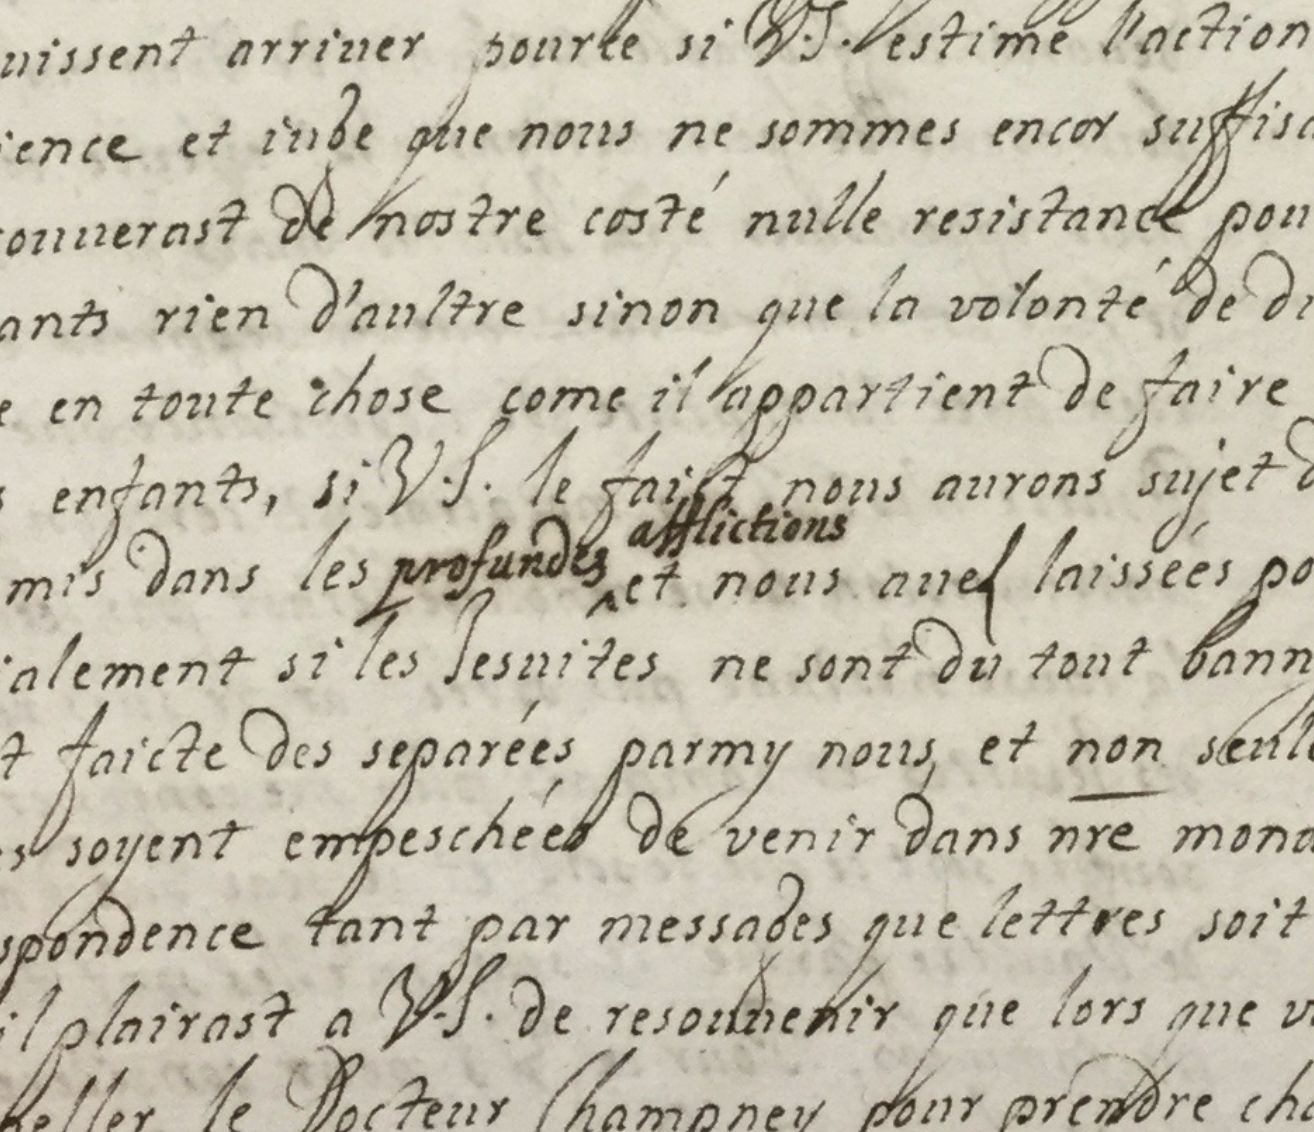 uissent arriuer pource si V.S. estime l'action
ience et iuge que nous ne sommes encor suffisa
rouuerast de nostre costé nulle resistance pou
ants rien d'aultre sinon que la volonté de di
e en toute chose come il appartient de faire
s enfants, si V.S. le faict nous aurons sujet d
afflictions
mis dans les profundes ^ et nous auez laissées po
ialement si les Jesuites ne sont du tout bann
t faicte des separées parmy nous, et non seule
es soyent empeschées de venir dans nre mona
spondence tant par messages que lettres soit
il plairast a V.S. de resouuenir que lors que v
peller le Docteur Champney pour prendre cha